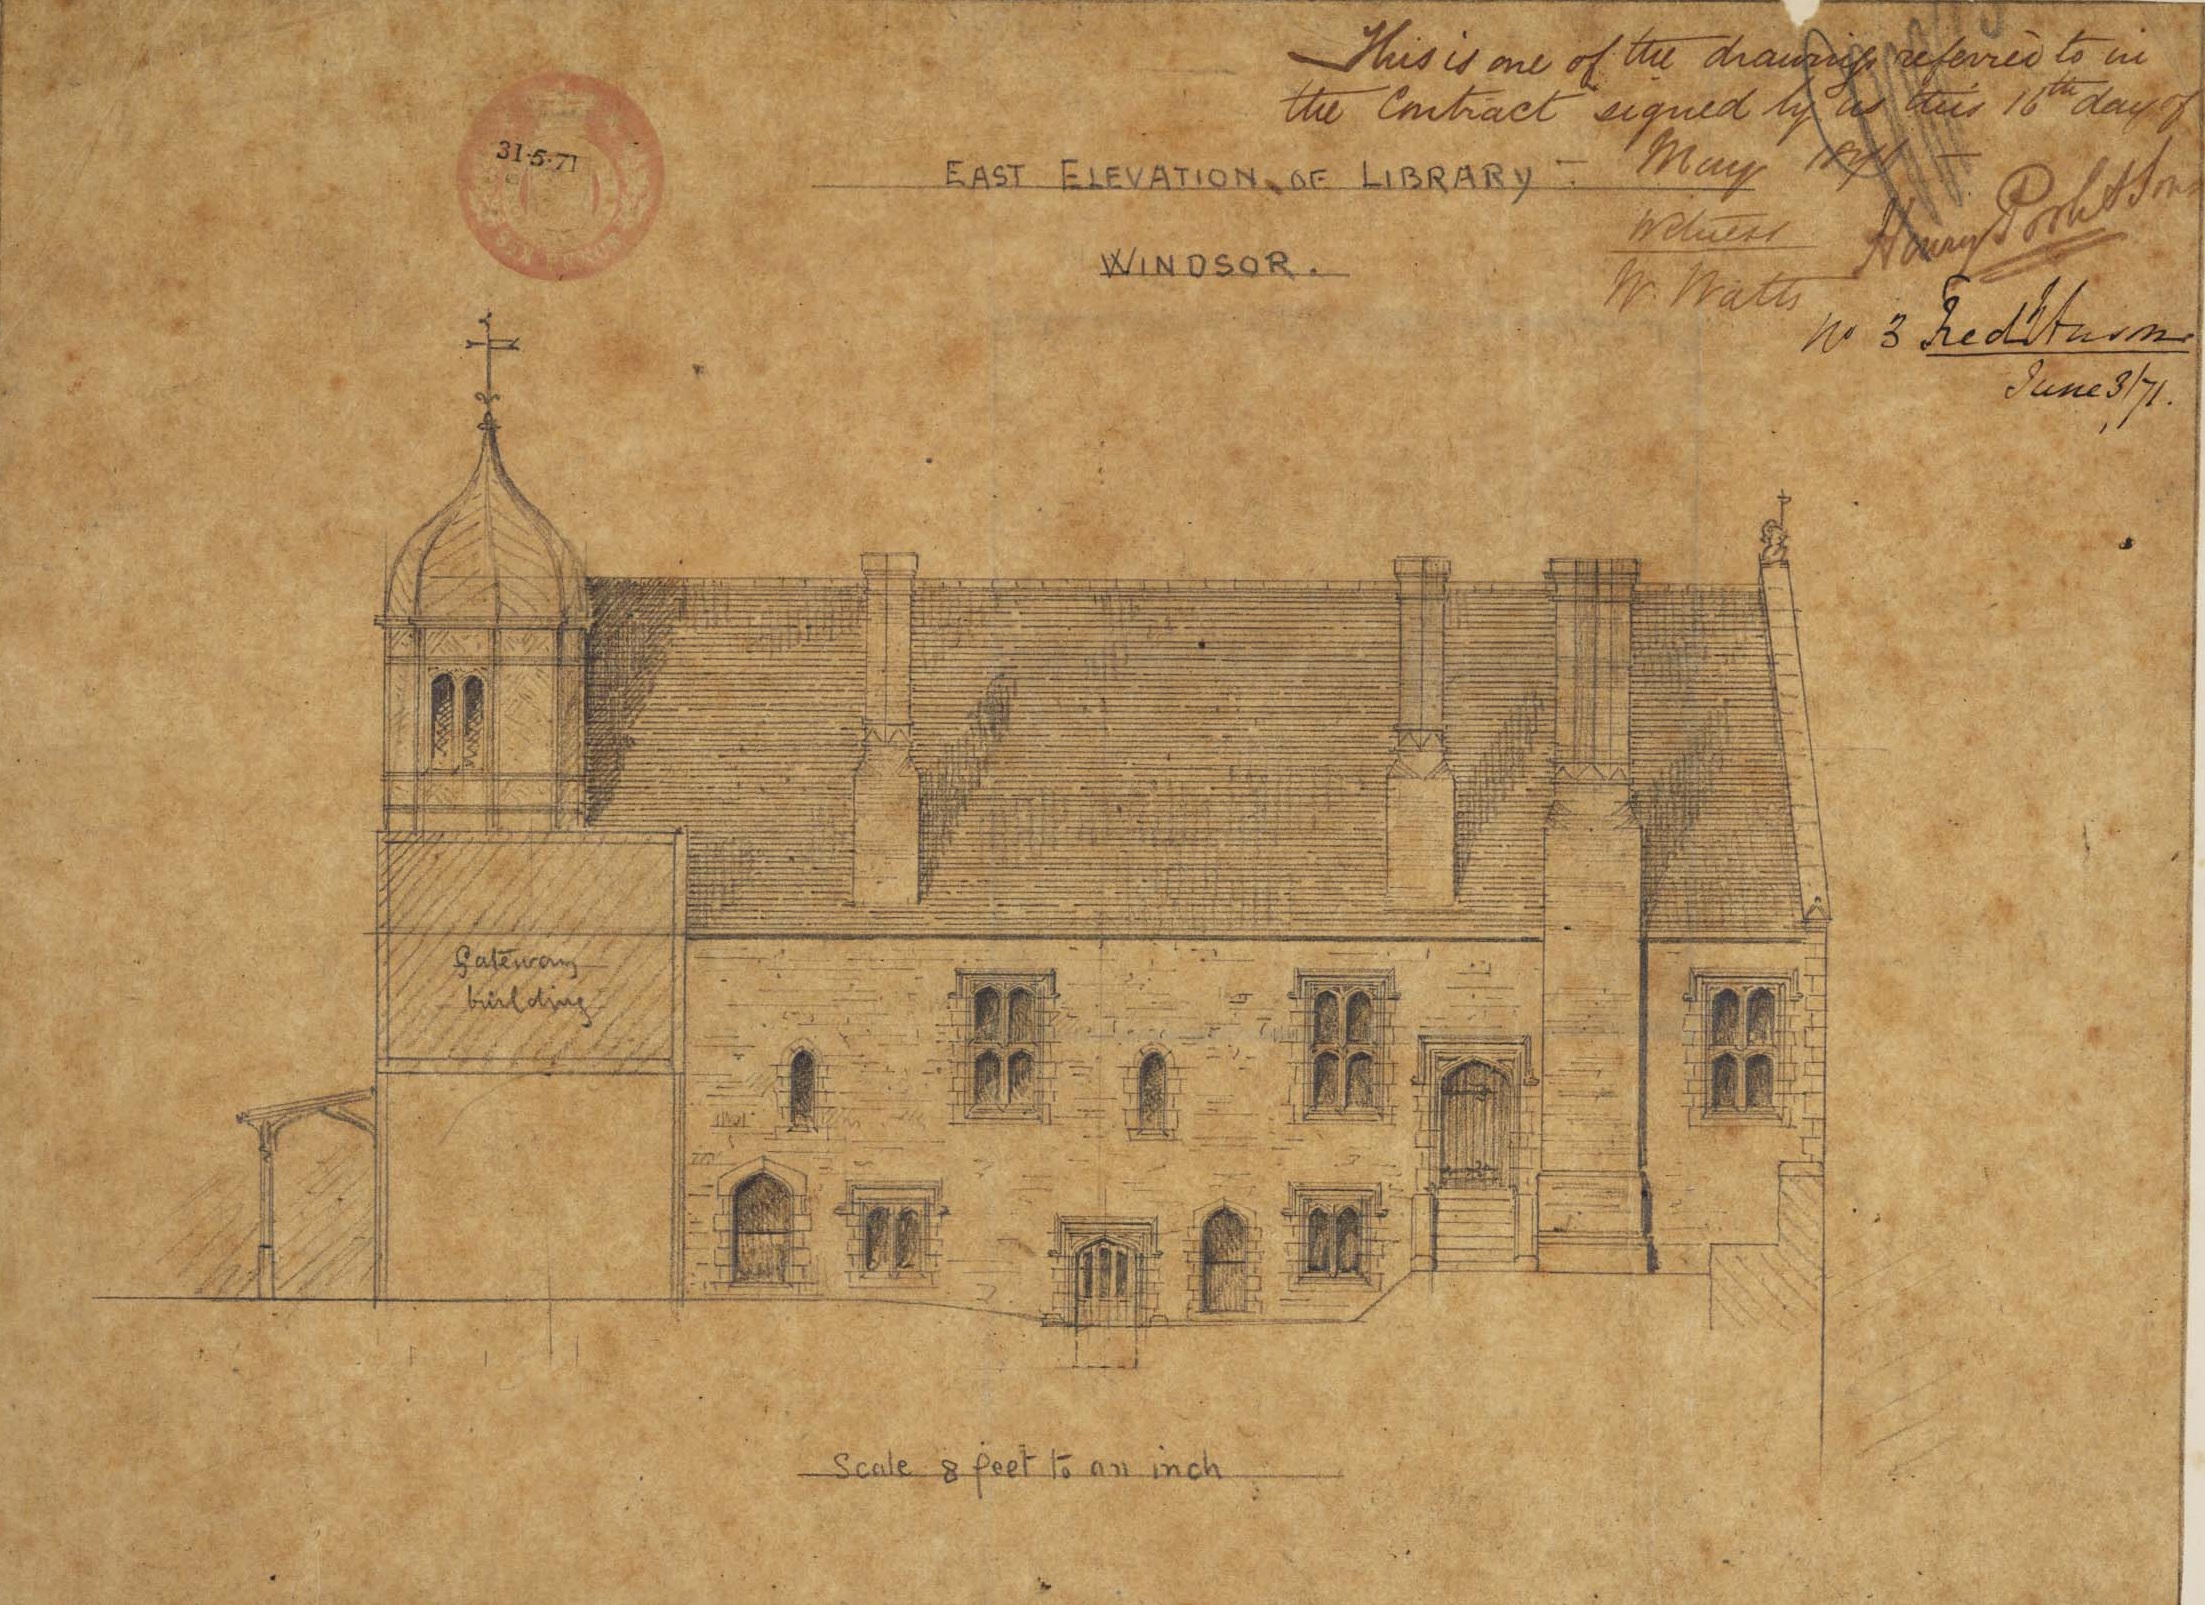 This is one of the drawings referred to in
the Contract signed by us this 16th day of
May 1871
EAST ELEVATION OF LIBRARY
WINDSOR.
Witness
W. Watts
Henry Poole & Sons
No 3 Fred Anson
June 3/71.
31·5·71
SIX PENCE
Gateway
building
Scale 8 feet to an inch